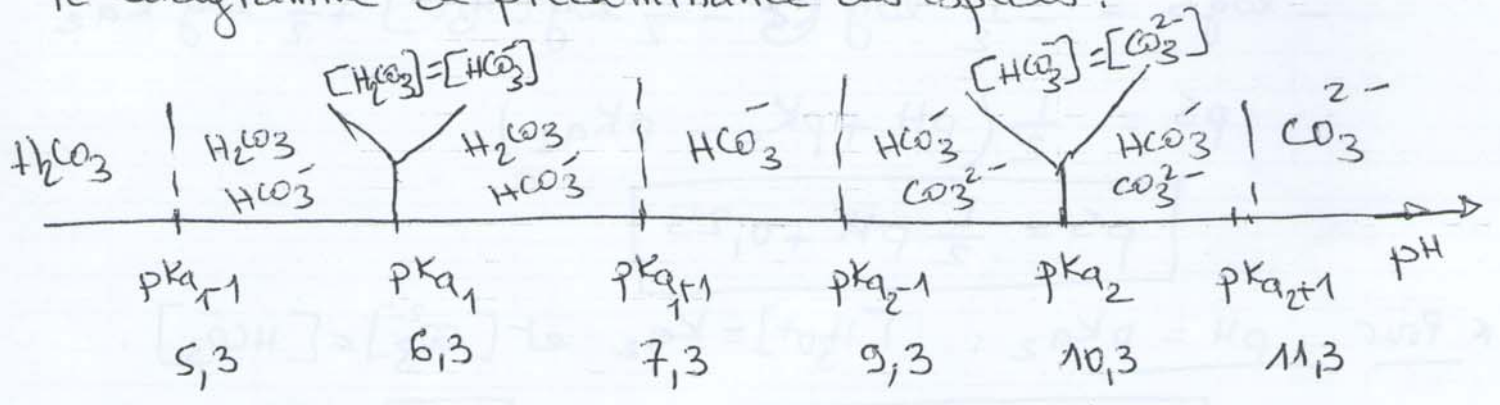 le diagramme de prédominance des espèces :
[H2CO3]=[HCO3-] [HCO3-]=[CO3 2-]
H2CO3 H2CO3 H2CO3 HCO3- HCO3- HCO3- CO3 2-
HCO3- HCO3- CO3 2- CO3 2-
pKa1-1 pKa1 pKa1+1 pKa2-1 pKa2 pKa2+1 pH
5,3 6,3 7,3 9,3 10,3 11,3